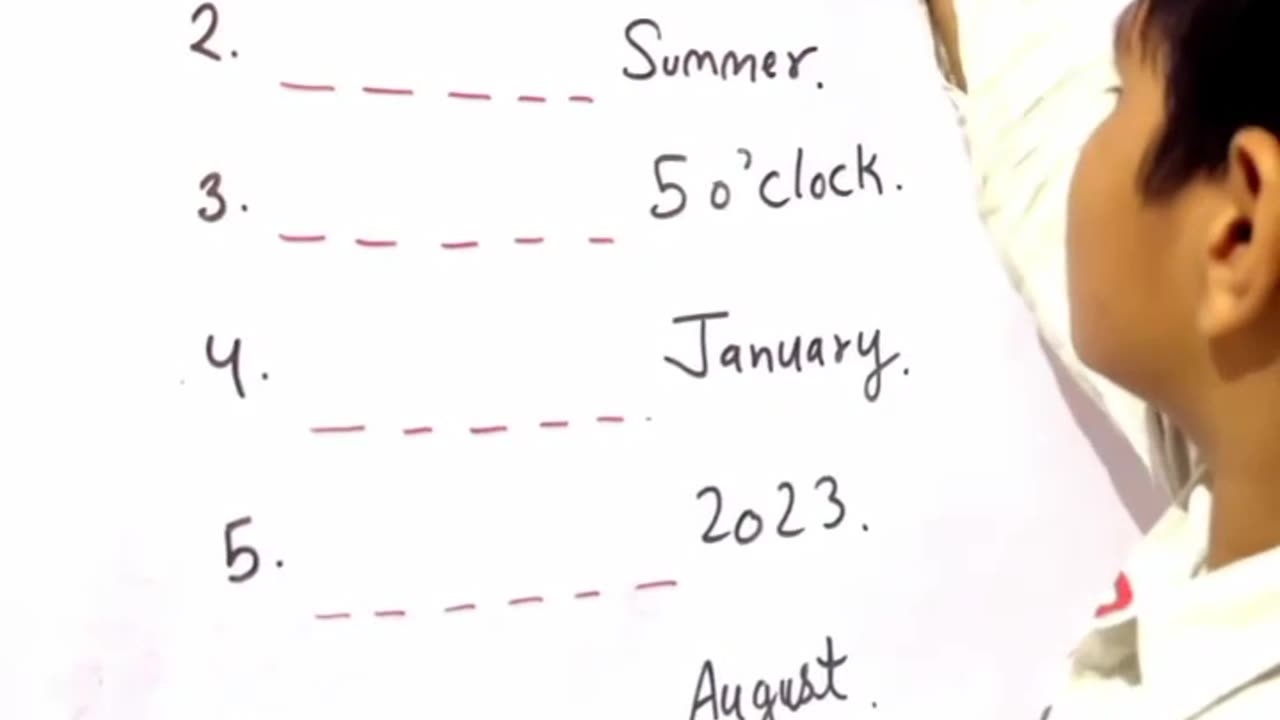 2. _ _ _ _ _ Summer.
3. _ _ _ _ _ 5 o'clock.
4. _ _ _ _ _ January.
5. _ _ _ _ _ _ 2023.
August.